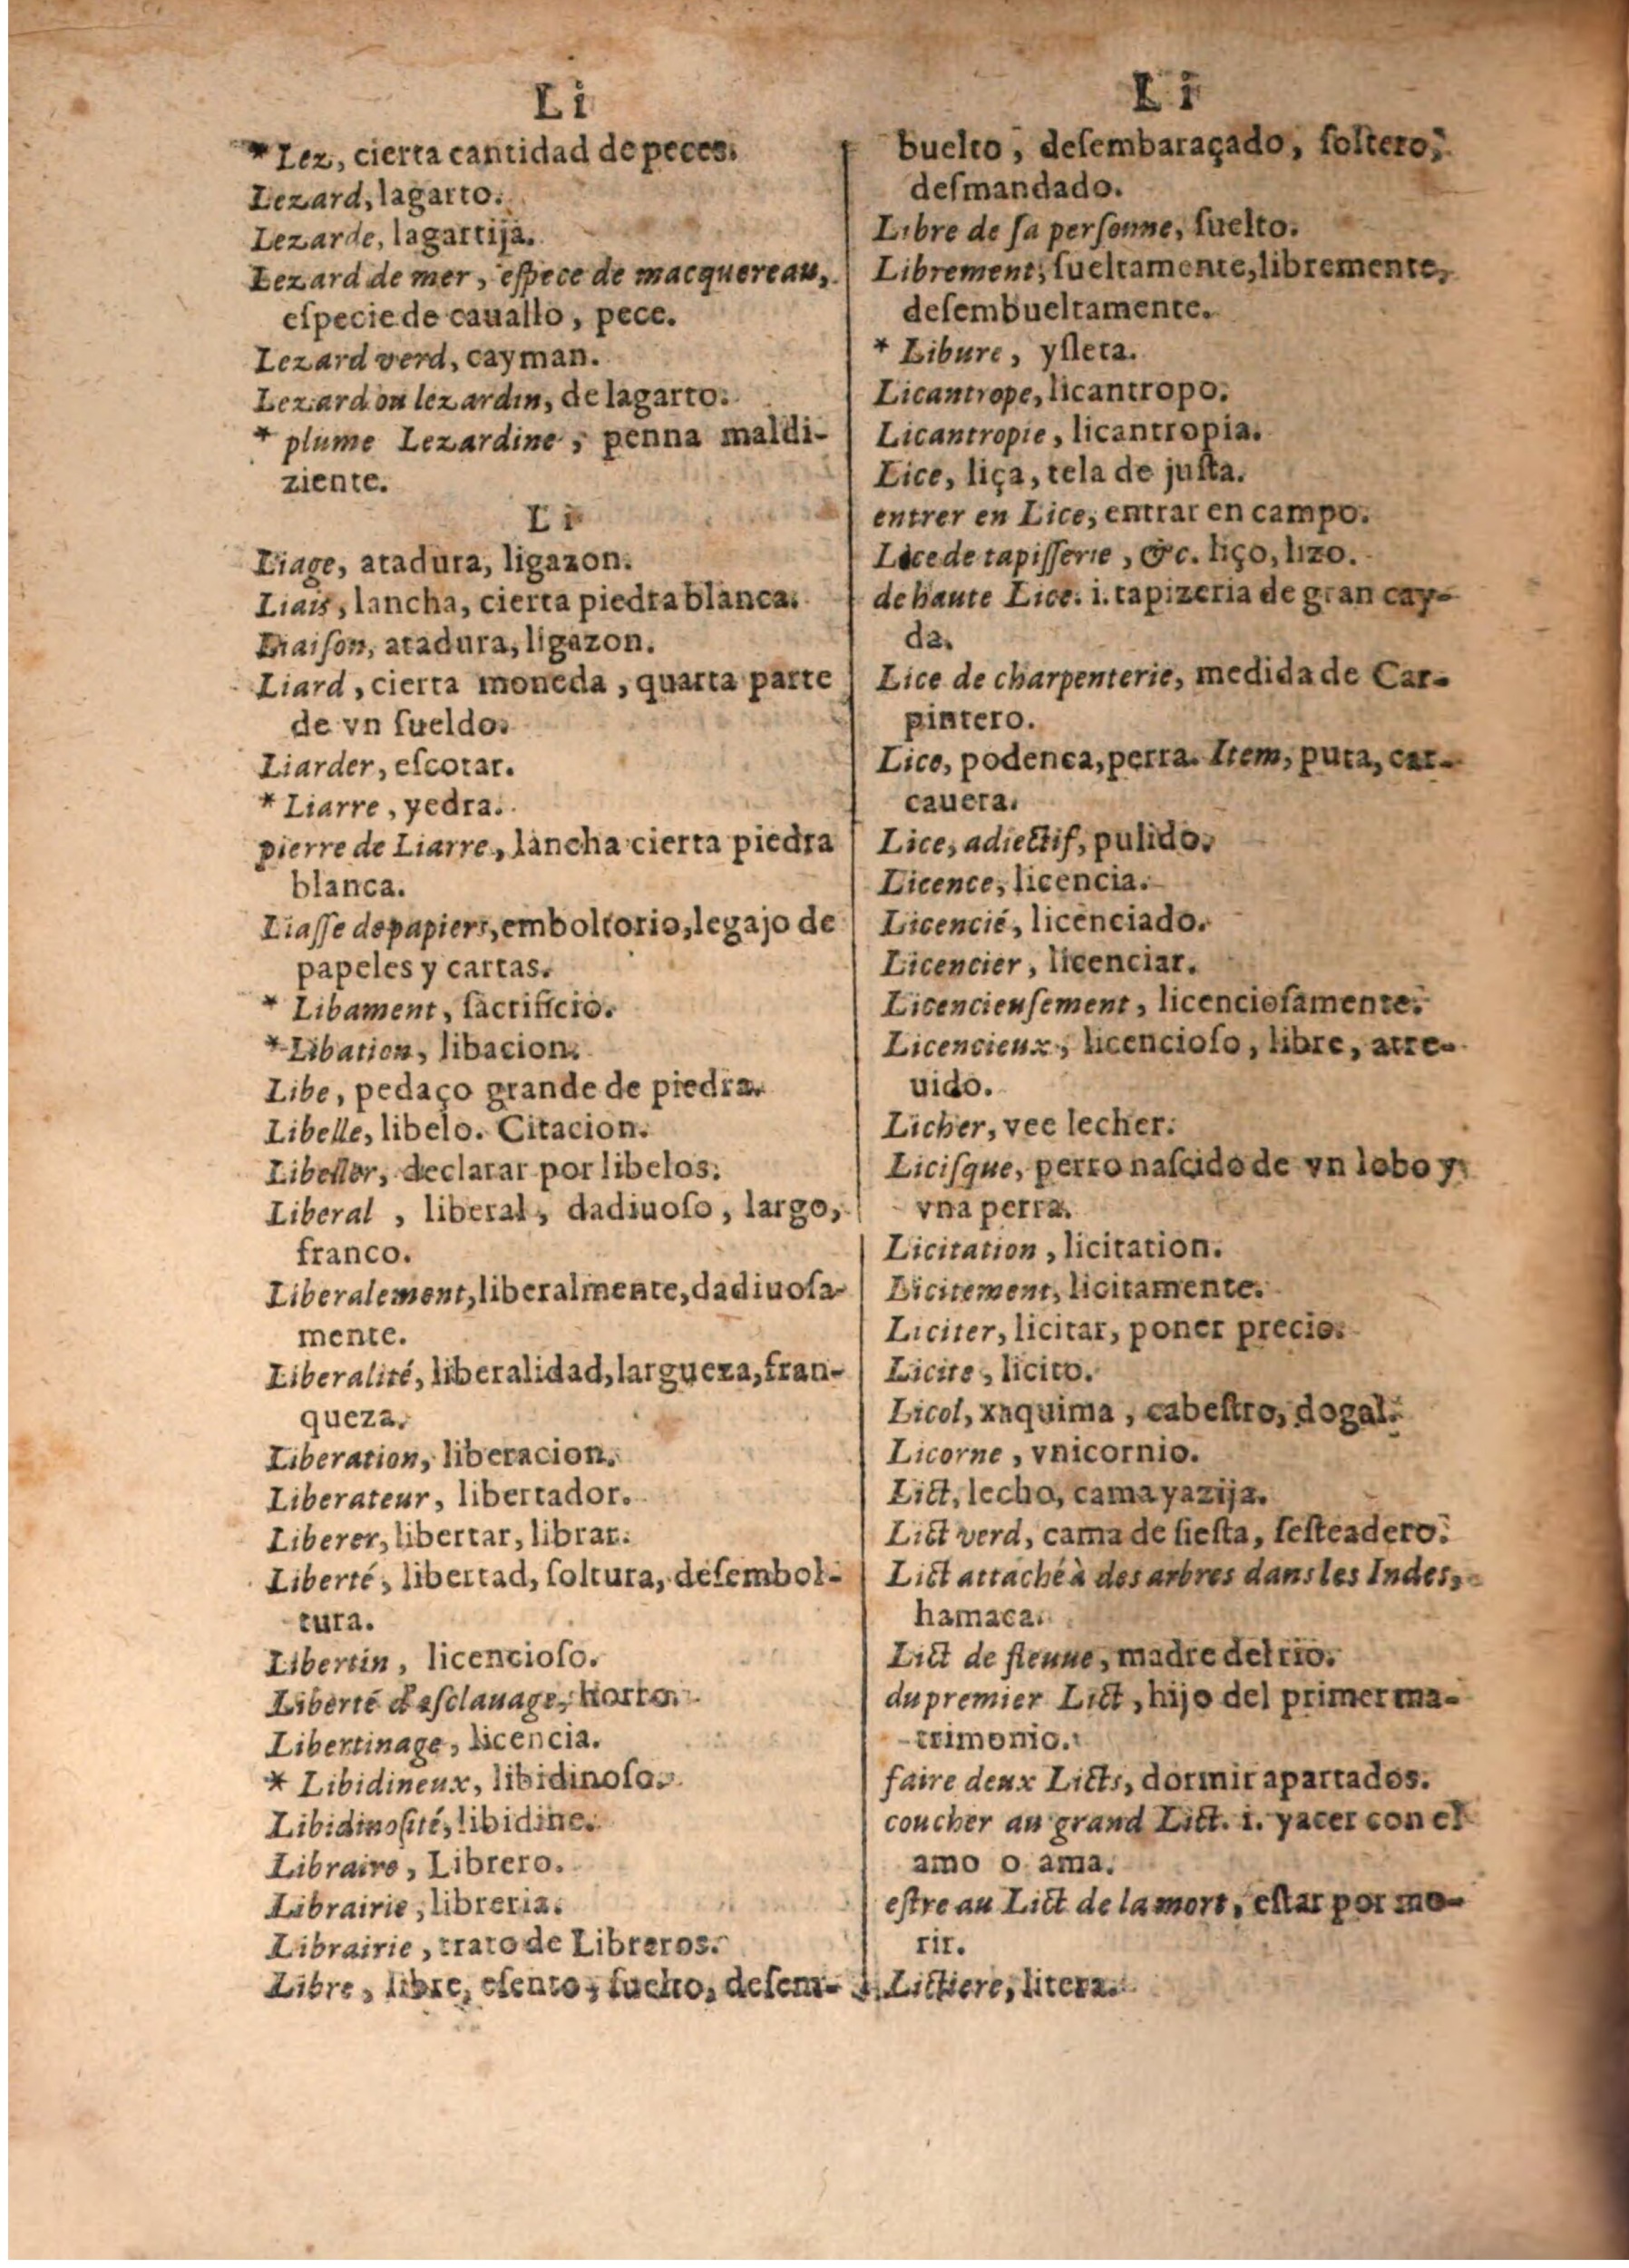 Li
* Lez, cierta cantidad de peces.
Lezard, lagarto.
Lezarde, lagartija.
Lezard de mer, eſpece de macquereau,
eſpecie de cauallo, pece.
Lezard verd, cayman.
Lezard ou lezardin, de lagarto.
* plume Lezardine, penna maldi-
ziente.
Li
Liage, atadura, ligazon.
Liais, lancha, cierta piedra blanca.
Liaiſon, atadura, ligazon.
Liard, cierta moneda, quarta parte
de vn ſueldo.
Liarder, eſcotar.
* Liarre, yedra.
pierre de Liarre, lancha cierta piedra
blanca.
Liaſſe de papiers, emboltorio, legajo de
papeles y cartas.
* Libament, ſacrificio.
* Libation, libacion.
Libe, pedaço grande de piedra.
Libelle, libelo. Citacion.
Libeller, declarar por libelos.
Liberal, liberal, dadiuoſo, largo,
franco.
Liberalement, liberalmente, dadiuoſa-
mente.
Liberalité, liberalidad, largueza, fran-
queza.
Liberation, liberacion.
Liberateur, libertador.
Liberer, libertar, librar.
Liberté, libertad, ſoltura, deſembol-
tura.
Libertin, licencioſo.
Liberté d'eſclauage, horro.
Libertinage, licencia.
* Libidineux, libidinoſo.
Libidinoſité, libidine.
Libraire, Librero.
Librairie, libreria.
Librairie, trato de Libreros.
Libre, libre, eſento, ſuelto, deſem-
Li
buelto, deſembaraçado, ſoltero,
deſmandado.
Libre de ſa perſonne, ſuelto.
Librement, ſueltamente, libremente,
deſembueltamente.
* Libure, yſleta.
Licantrope, licantropo.
Licantropie, licantropia.
Lice, liça, tela de juſta.
entrer en Lice, entrar en campo.
Lice de tapiſſerie, &c. liço, lizo.
de haute Lice. i. tapizeria de gran cay-
da.
Lice de charpenterie, medida de Car-
pintero.
Lice, podenca, perra. Item, puta, car-
cauera.
Lice, adiectif, pulido.
Licence, licencia.
Licencié, licenciado.
Licencier, licenciar.
Licencieuſement, licencioſamente.
Licencieux, licencioſo, libre, atre-
uido.
Licher, vee lecher.
Liciſque, perro naſcido de vn lobo y
vna perra.
Licitation, licitation.
Licitement, licitamente.
Liciter, licitar, poner precio.
Licite, licito.
Licol, xaquima, cabeſtro, dogal.
Licorne, vnicornio.
Lict, lecho, cama yazija.
Lict verd, cama de ſieſta, ſeſteadero.
Lict attaché à des arbres dans les Indes,
hamaca.
Lict de fleuue, madre del rio.
du premier Lict, hijo del primer ma-
trimonio.
faire deux Licts, dormir apartados.
coucher au grand Lict. i. yacer con el
amo o ama.
eſtre au Lict de la mort, eſtar por mo-
rir.
Lictiere, litera.